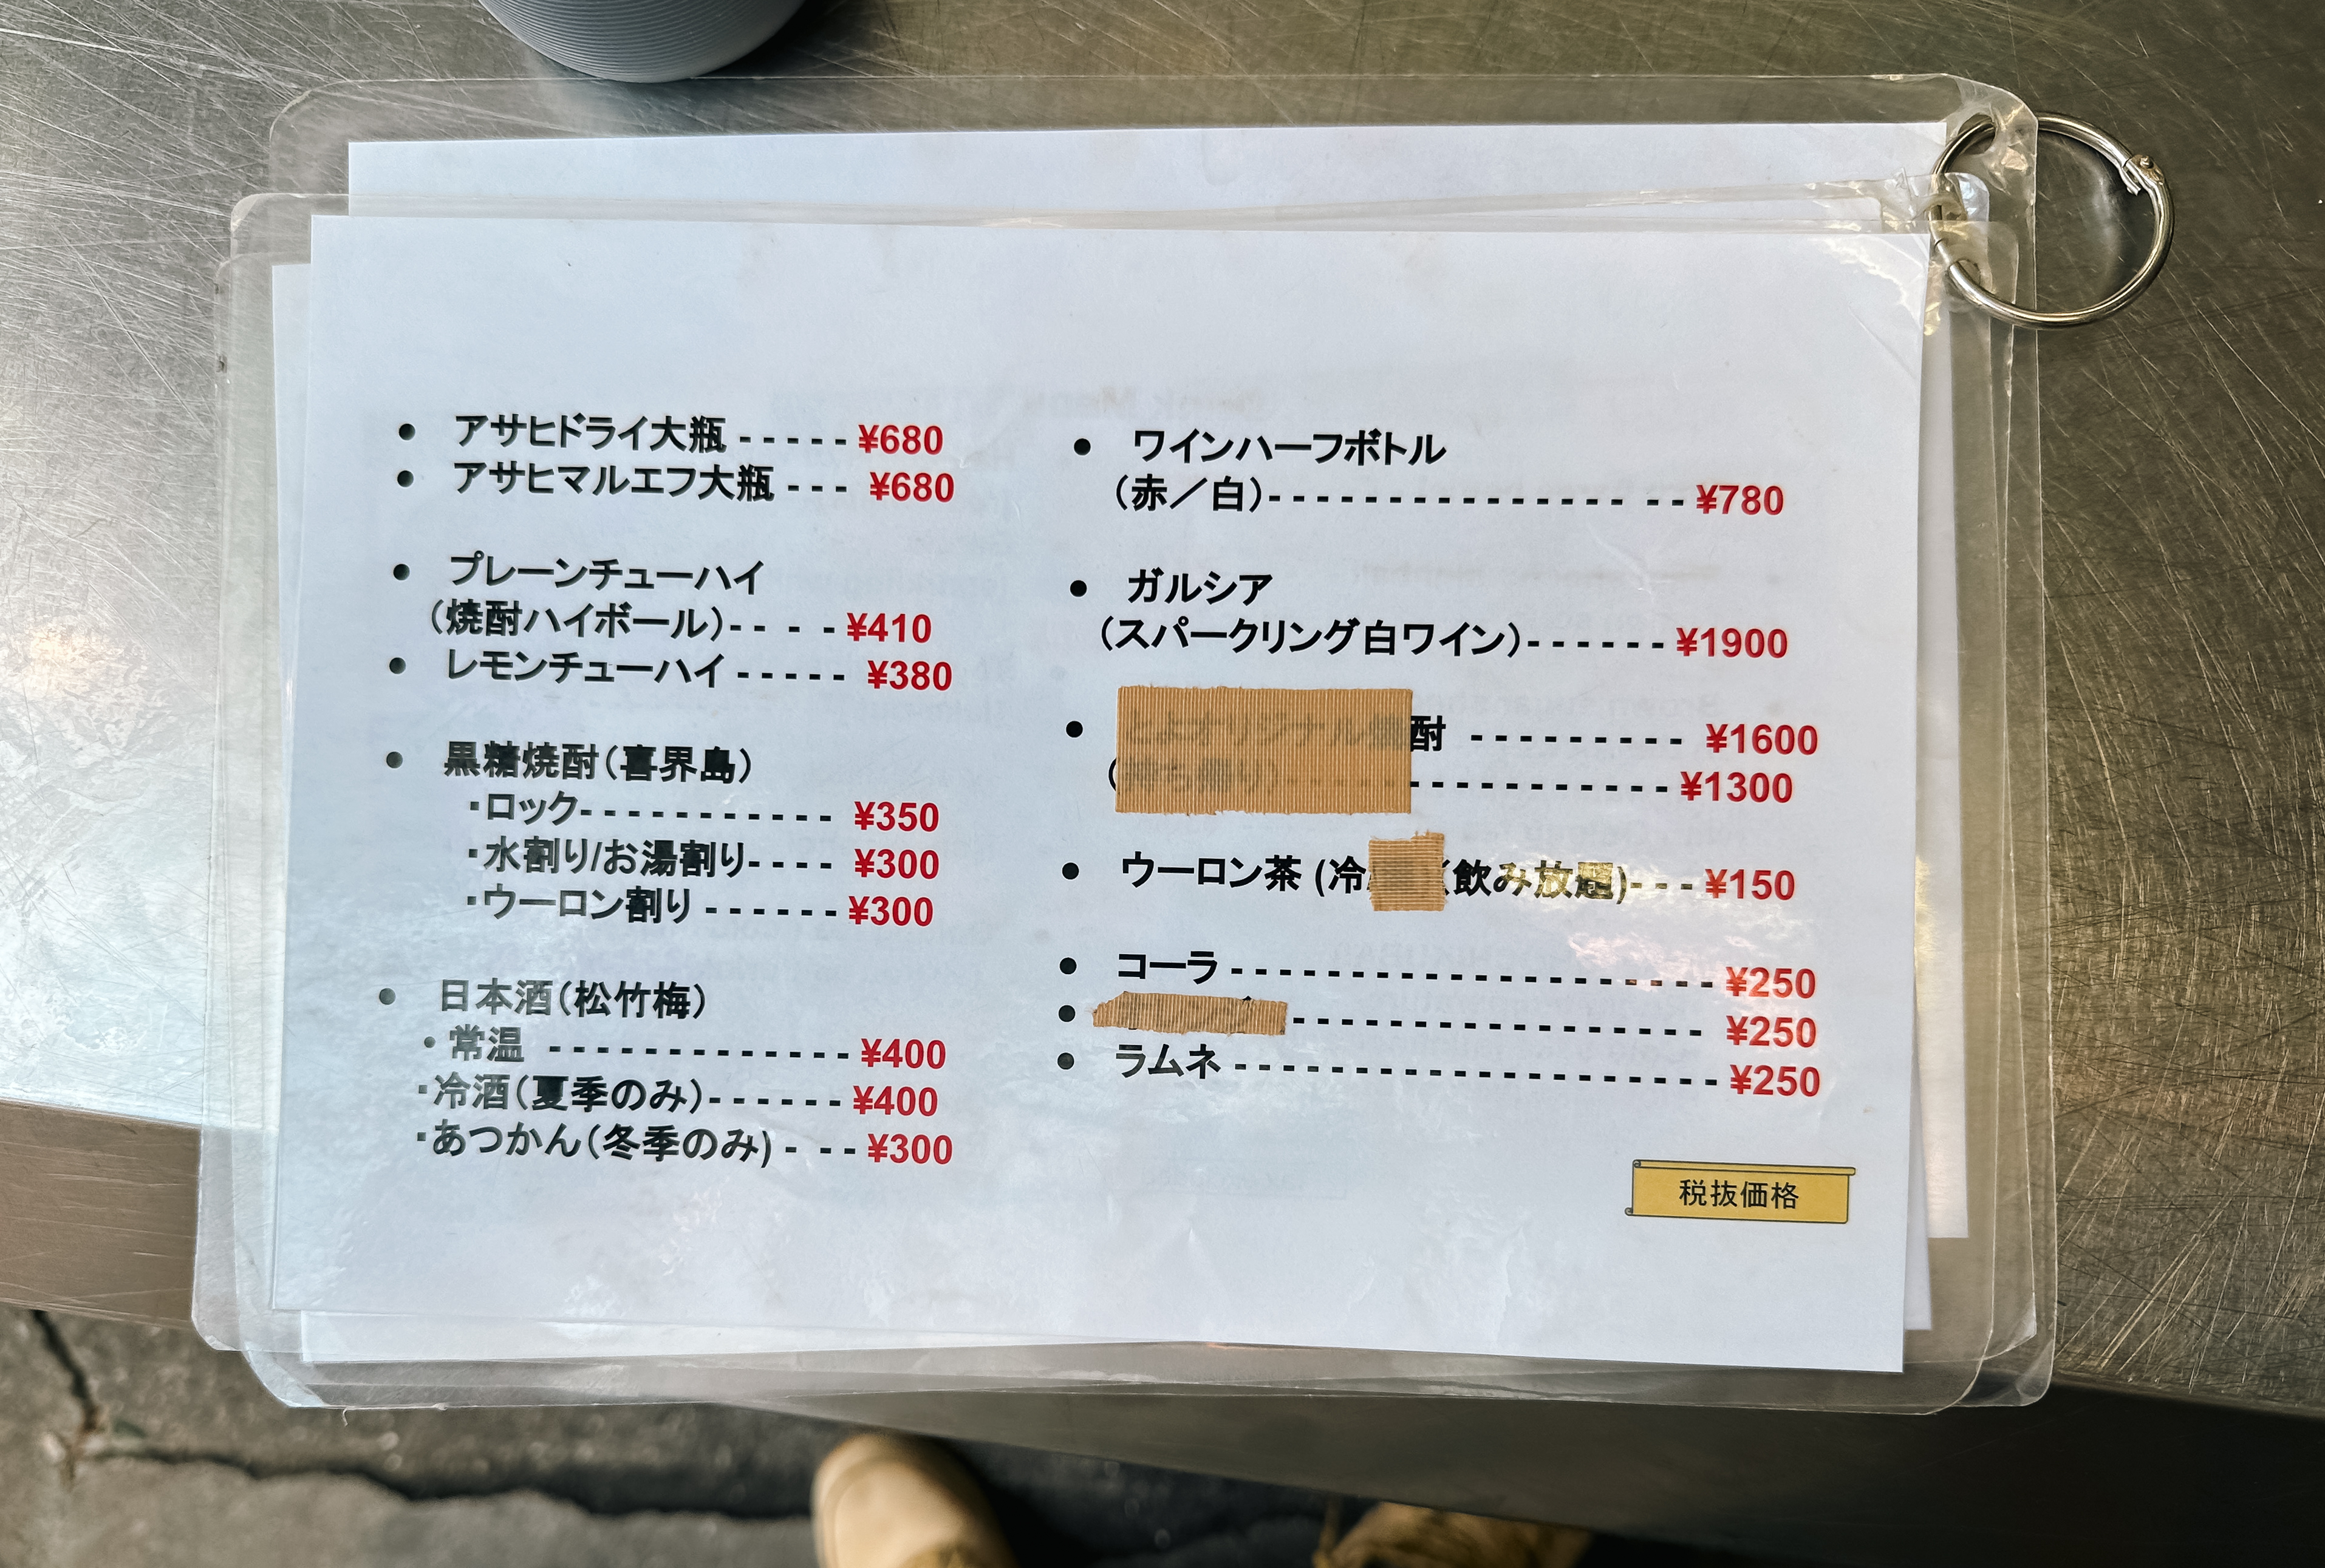 • アサヒドライ大瓶 ----- ¥680
• アサヒマルエフ大瓶 --- ¥680
• プレーンチューハイ
(焼酎ハイボール)-- - - ¥410
• レモンチューハイ ----- ¥380
• 黒糖焼酎(喜界島)
・ロック----------- ¥350
・水割り/お湯割り---- ¥300
・ウーロン割り ------ ¥300
• 日本酒(松竹梅)
・常温 ------------- ¥400
・冷酒(夏季のみ)------ ¥400
・あつかん(冬季のみ) - -- ¥300
• ワインハーフボトル
(赤/白)--------------- -- ¥780
• ガルシア
(スパークリング白ワイン)------ ¥1900
• 酎 --------- ¥1600
( ----------- ¥1300
• ウーロン茶 (冷 (飲み放題)--- ¥150
• コーラ ------------------- ¥250
• ---------------- ¥250
• ラムネ ------------------- ¥250
税抜価格